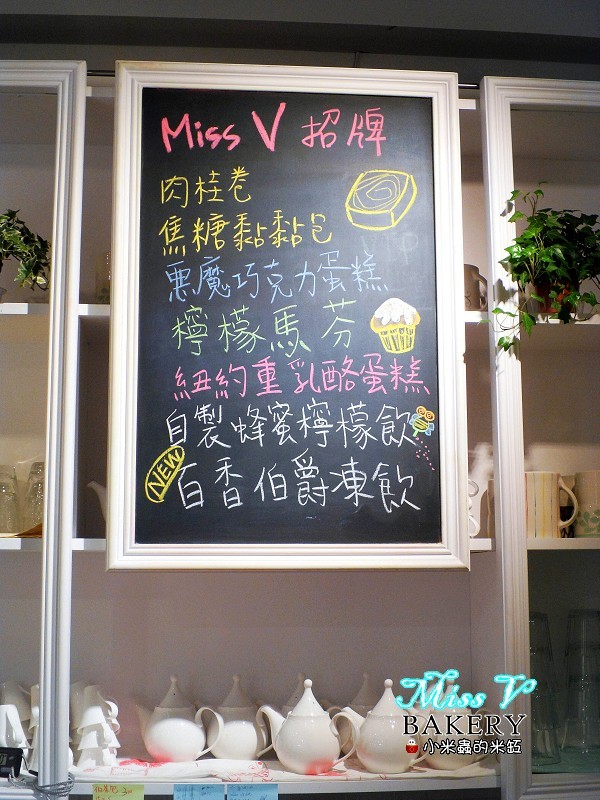 Miss V 招牌
肉桂卷
焦糖黏黏包
惡魔巧克力蛋糕
檸檬馬芬
紐約重乳酪蛋糕
自製蜂蜜檸檬飲
NEW 百香伯爵凍飲
Miss V
BAKERY
小米蟲的米缸